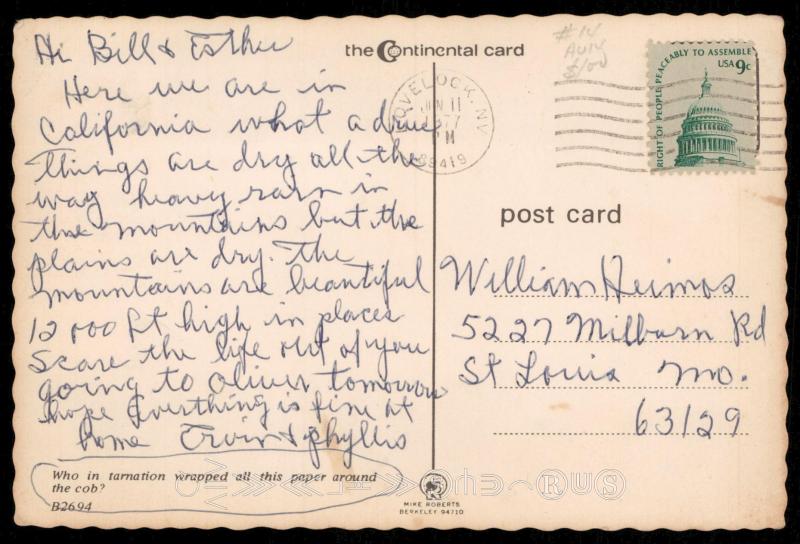 Hi Bill & Esther
Here we are in
California what a drive
Things are dry all the
way heavy rain in
the mountains but the
plains are dry. The
mountains are beautiful
12 000 ft high in places
Scare the life out of you
going to Oliver tomorrow
hope everthing is fine at
home Ervin & phyllis
Who in tarnation wrapped all this paper around
the cob?
B2694
the Continental card
#14
$1.00
LOVELOCK, NV
JUN 11
PM
89419
RIGHT OF PEOPLE PEACEABLY TO ASSEMBLE
USA 9c
post card
William Heimos
5227 Milburn Rd
St Louis Mo.
63129
MIKE ROBERTS
BERKELEY 94710